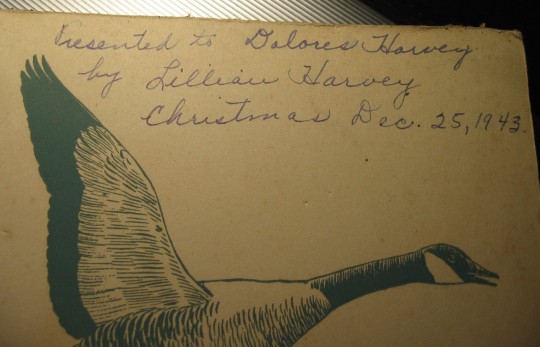 Presented to Dolores Harvey
by Lillian Harvey
Christmas Dec. 25, 1943.